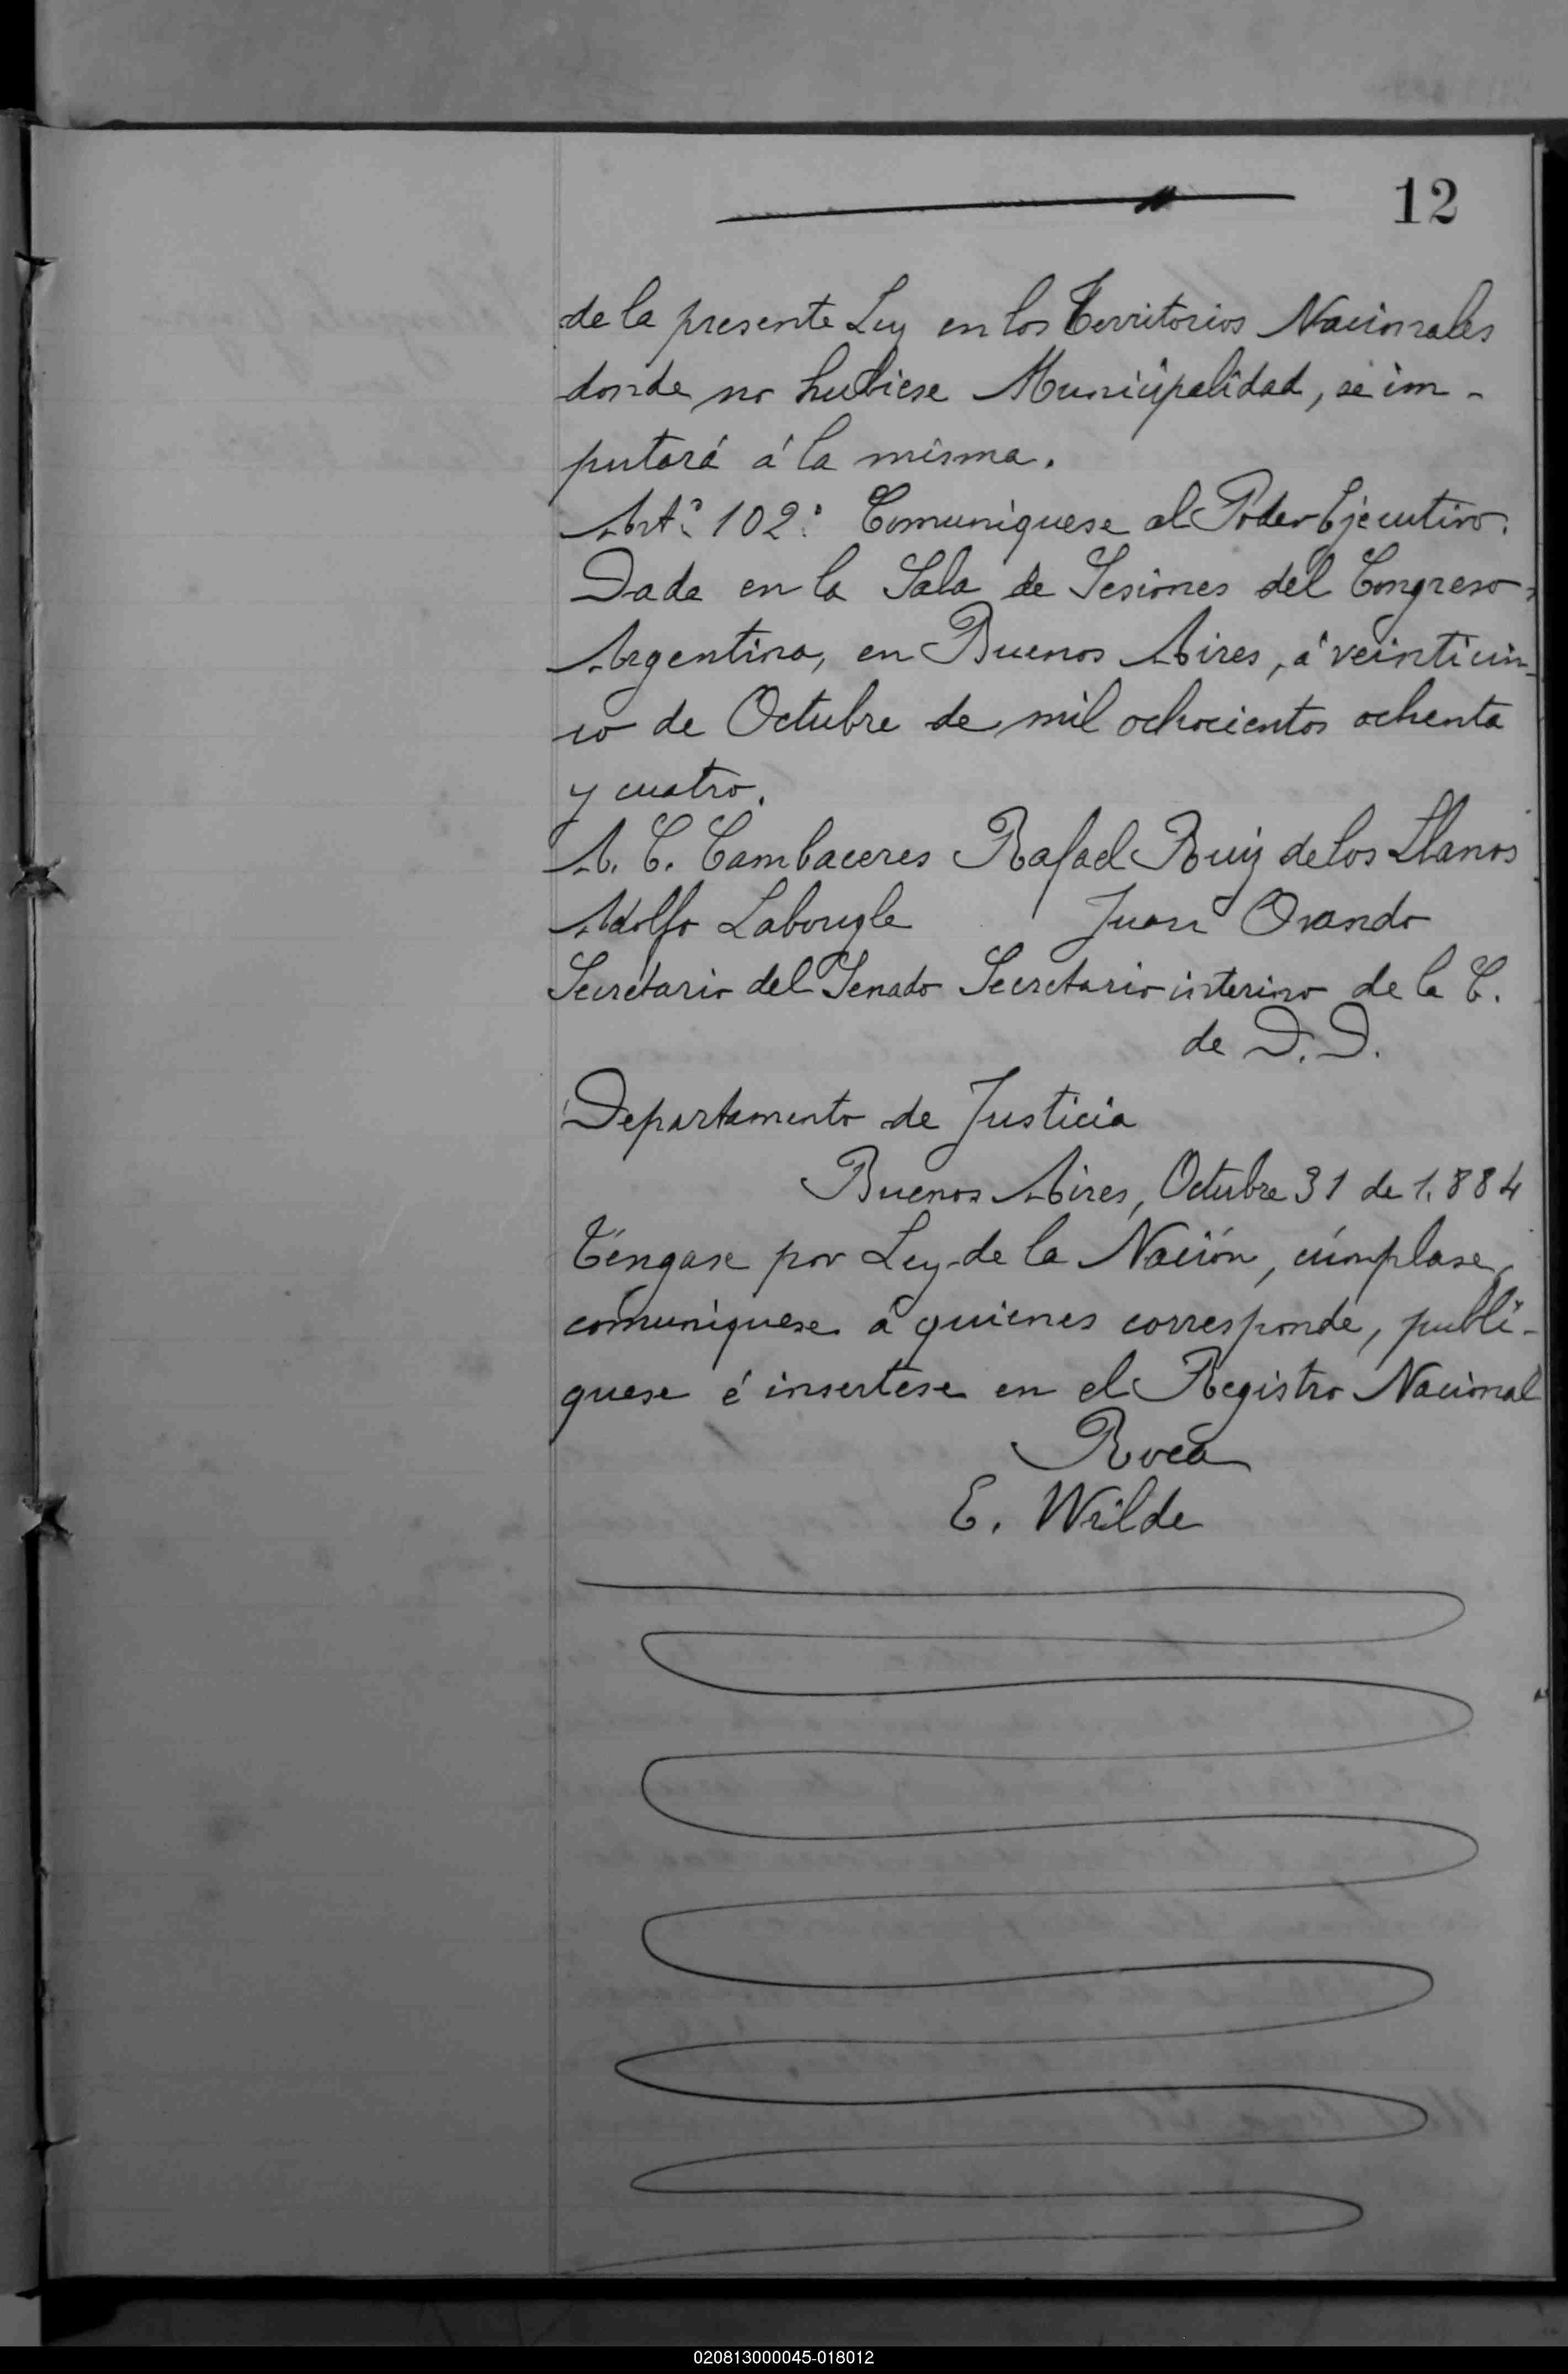 12
de la presente Ley en los Territorios Nacionales
donde no hubiese Municipalidad, se im-
putará á la misma.
Art.º 102º Comuníquese al Poder Ejecutivo.
Dada en la Sala de Sesiones del Congreso
Argentino, en Buenos Aires, á veinticin-
co de Octubre de mil ochocientos ochenta
y cuatro.
A. C. Cambaceres Rafael Ruiz de los Llanos
Adolfo Labougle Juan Ovando
Secretario del Senado Secretario interino de la C.
de D. D.
Departamento de Justicia
Buenos Aires, Octubre 31 de 1.884
Téngase por Ley de la Nación, cúmplase,
comuníquese á quienes corresponde, publí-
quese é insertese en el Registro Nacional
Roca
E. Wilde
020813000045-018012